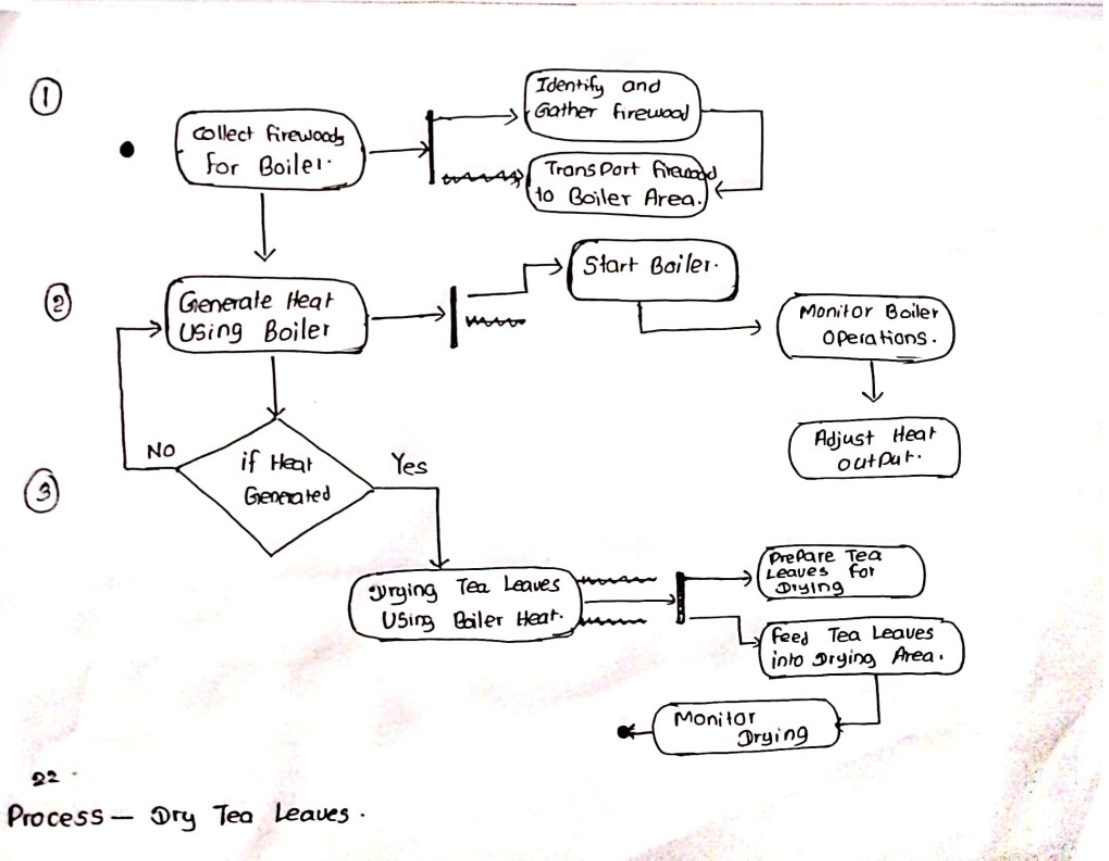 1
Collect firewoods
for Boiler.
Identify and
Gather firewood
Transport firewood
to Boiler Area.
2
Generate Heat
Using Boiler
Start Boiler.
Monitor Boiler
Operations.
Adjust Heat
output.
3
if Heat
Generated
No
Yes
Drying Tea Leaves
Using Boiler Heat.
Prepare Tea
Leaves for
Drying
Feed Tea Leaves
into Drying Area.
Monitor
Drying
22.
Process – Dry Tea Leaves.